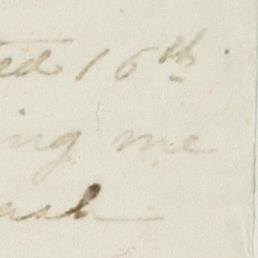 ted 16th.
ing me
ash